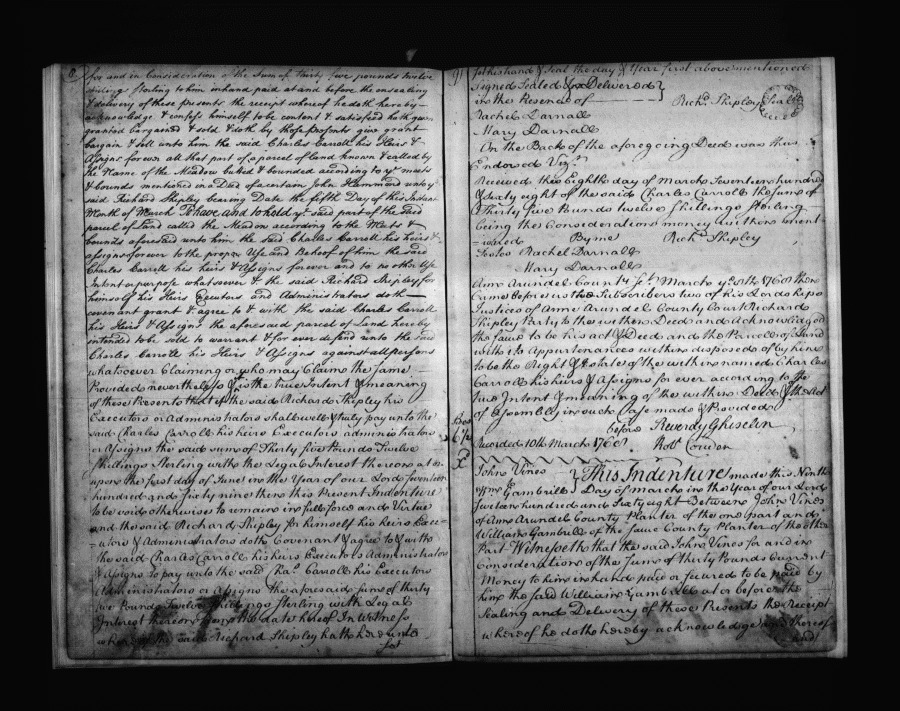 8
for and in Consideration of the Sum of thirty five pounds twelve
shillings Sterling to him in hand paid at and before the ensealing
& delivery of these presents the receipt whereof he doth hereby
acknowledge & confess himself to be content & satisfied hath given
granted bargained & sold & doth by these presents give grant
bargain & sell unto him the said Charles Carroll his Heirs &
Assigns for ever all that part of a parcel of land known & called by
the Name of the Meadow buted & bounded according to ye meets
& bounds mentioned in a Deed of a certain John Hammond unto ye
said Richard Shipley bearing Date the fifth Day of this Instant
Month of March To have and to hold ye said part of the said
parcel of Land called the Meadow according to the Meets &
bounds aforesaid unto him the said Charles Carroll his heirs &
assigns forever to the proper Use and Behoof of him the said
Charles Carroll his heirs & Assigns forever and to no other Use
Intent or purpose whatsoever & the said Richard Shipley for
himself his Heirs Executors and Administrators doth
covenant grant & agree to & with the said Charles Carroll
his Heirs & Assigns the aforesaid parcel of Land hereby
intended to be sold to warrant & for ever defend unto the said
Charles Carroll his Heirs & Assigns against all persons
whatsoever Claiming or who may Claim the same
Provided nevertheless & it is the true Intent & meaning
of these Presents that if the said Richard Shipley his
Executors or Administrators shall well & truly pay unto the
said Charles Carroll his heirs Executors administrators
or Assigns the said sum of Thirty five Pounds Twelve
Shillings Sterling with the Legal Interest thereon at or
upon the first day of June in the Year of our Lord seventeen
hundred and sixty nine then this Present Indenture
to be void otherwise to remain in full force and Virtue
and the said Richard Shipley for himself his heirs Exec-
=utors & Administrators doth Covenant & agree to & with
the said Charles Carroll his heirs Executors Administrators
& Assigns to pay unto the said Chas. Carroll his Executors
Administrators or Assigns the aforesaid sum of thirty
five Pounds Twelve Shillings Sterling with Legal
Interest thereon from the date hereof In Witness
whereof the said Richard Shipley hath hereunto
set
9
set his hand & Seal the day & Year first above mentioned
Signed Sealed & Delivered }
in the Presence of Richd. Shipley Seal
Rachel Darnall
Mary Darnall
On the Back of the aforegoing Deed was thus
Endorsed Vizt.
Received the Eighth day of March Seventeen hundred
& Sixty eight of the said Charles Carroll the sum of
Thirty five Pounds twelve Shillings Sterling
being the Consideration money within ment-
=ioned By me Richd. Shipley
Testes Rachel Darnall
Mary Darnall
Ann Arundel County Sct. March ye 8th 1768 then
Came before us the Subscribers two of his Lordships
Justices of Anne Arundel County Court Richard
Shipley Party to the within Deed and acknowledged
the same to be his act & Deed and the Parcel of Land
with its Appurtenances within disposed of by him
to be the Right & Estate of the within named Charles
Carroll his heirs & Assigns for ever according to the
true Intent & meaning of the within Deed & the Act
of Assembly in such Case made & Provided
before Reverdy Ghiselin
Recorded 10th March 1768 Robt. Couden
John Vines } This Indenture made this Ninth
Wm. Gambrill } Day of march in the Year of our Lord
Seventeen hundred and Sixty eight Between John Vines
of Ann Arundel County Planter of the one part and
William Gambrill of the same County Planter of the other
Part Witnesseth that the said John Vines for and in
Consideration of the Sum of thirty Pounds Current
Money to him in hand paid or secured to be paid by
him the said William Gambrill at or before the
Sealing and Delivery of these Presents the receipt
whereof he doth hereby acknowledge and thereof
and